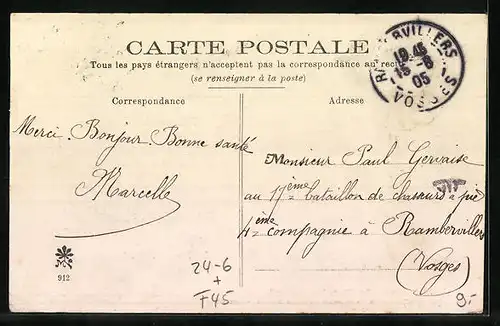 CARTE POSTALE
Tous les pays étrangers n'acceptent pas la correspondance au recto
(se renseigner à la poste)
RVILLERS
18 45
15 -6
05
VOSGES
Correspondance
Adresse
Merci. Bonjour. Bonne santé
Marcelle
Monsieur Paul Gervaise
au 17ème bataillon de chasseurs à pié
4ème compagnie à Rambervillers
(Vosges)
912
24-6
+
F45
9.-